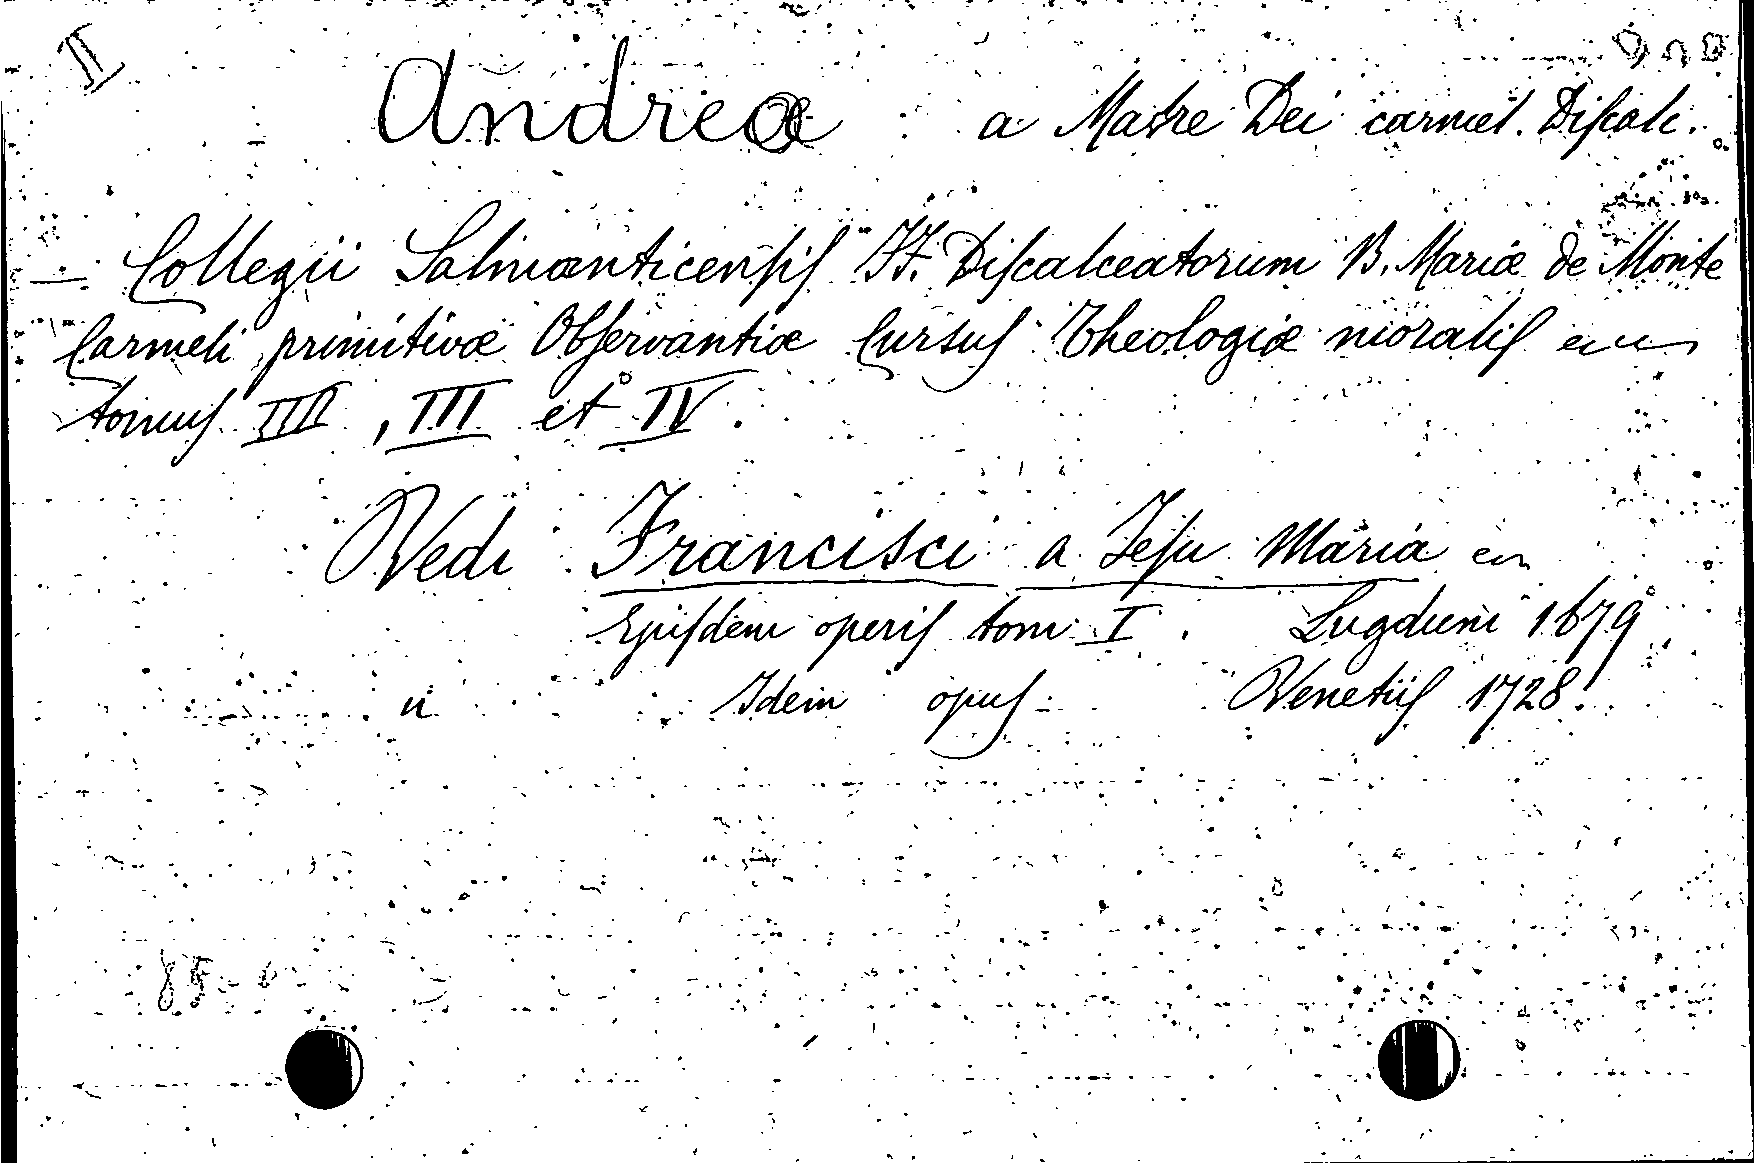 II
Andreæ a Matre Dei carmel. Discalc.
— Collegii Salmanticensis FF. Discalceatorum B. Mariæ de Monte
Carmeli primitivæ Observantiæ Cursus Theologiæ moralis
tomus III, III et IV.
Vedi Francisci a Jesu Maria
Ejusdem operis tom. I. Lugduni 1679
Idem opus Venetiis 1728.